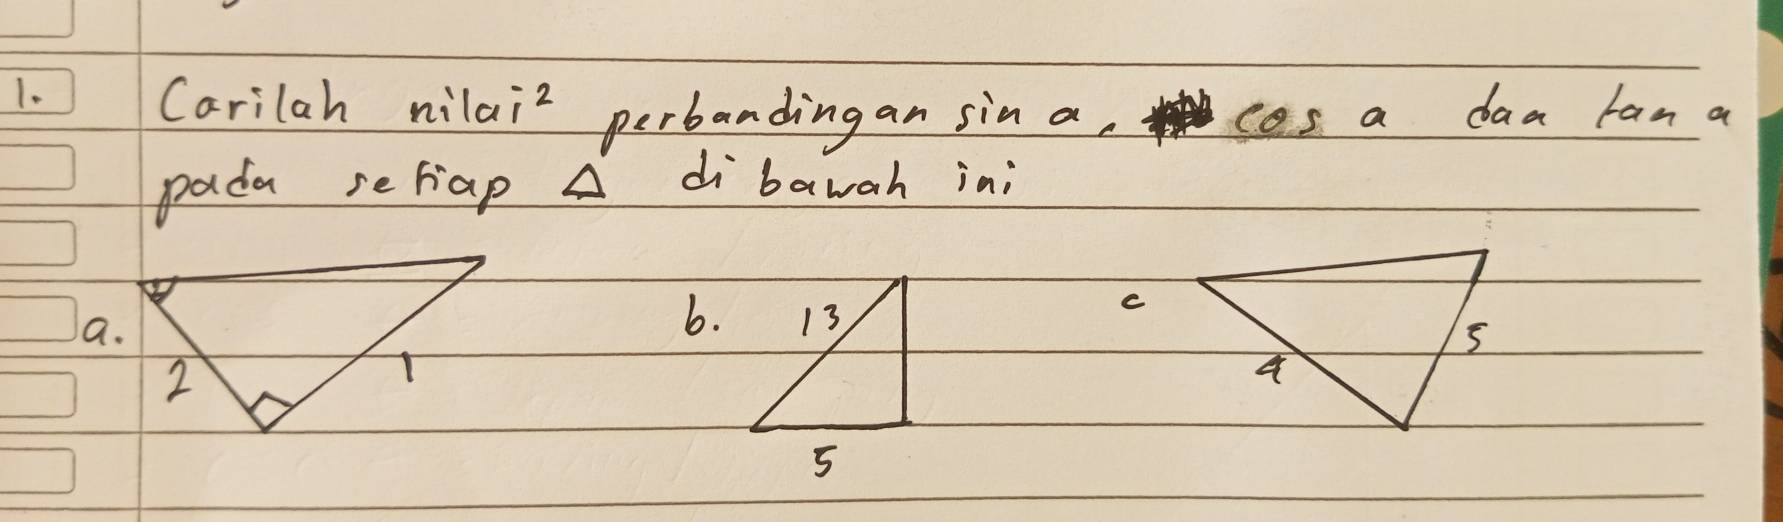 1. Carilah nilai² perbandingan sin a, cos a dan tan a
pada setiap △ di bawah ini
a. 2 1
b. 13 5
c 4 5